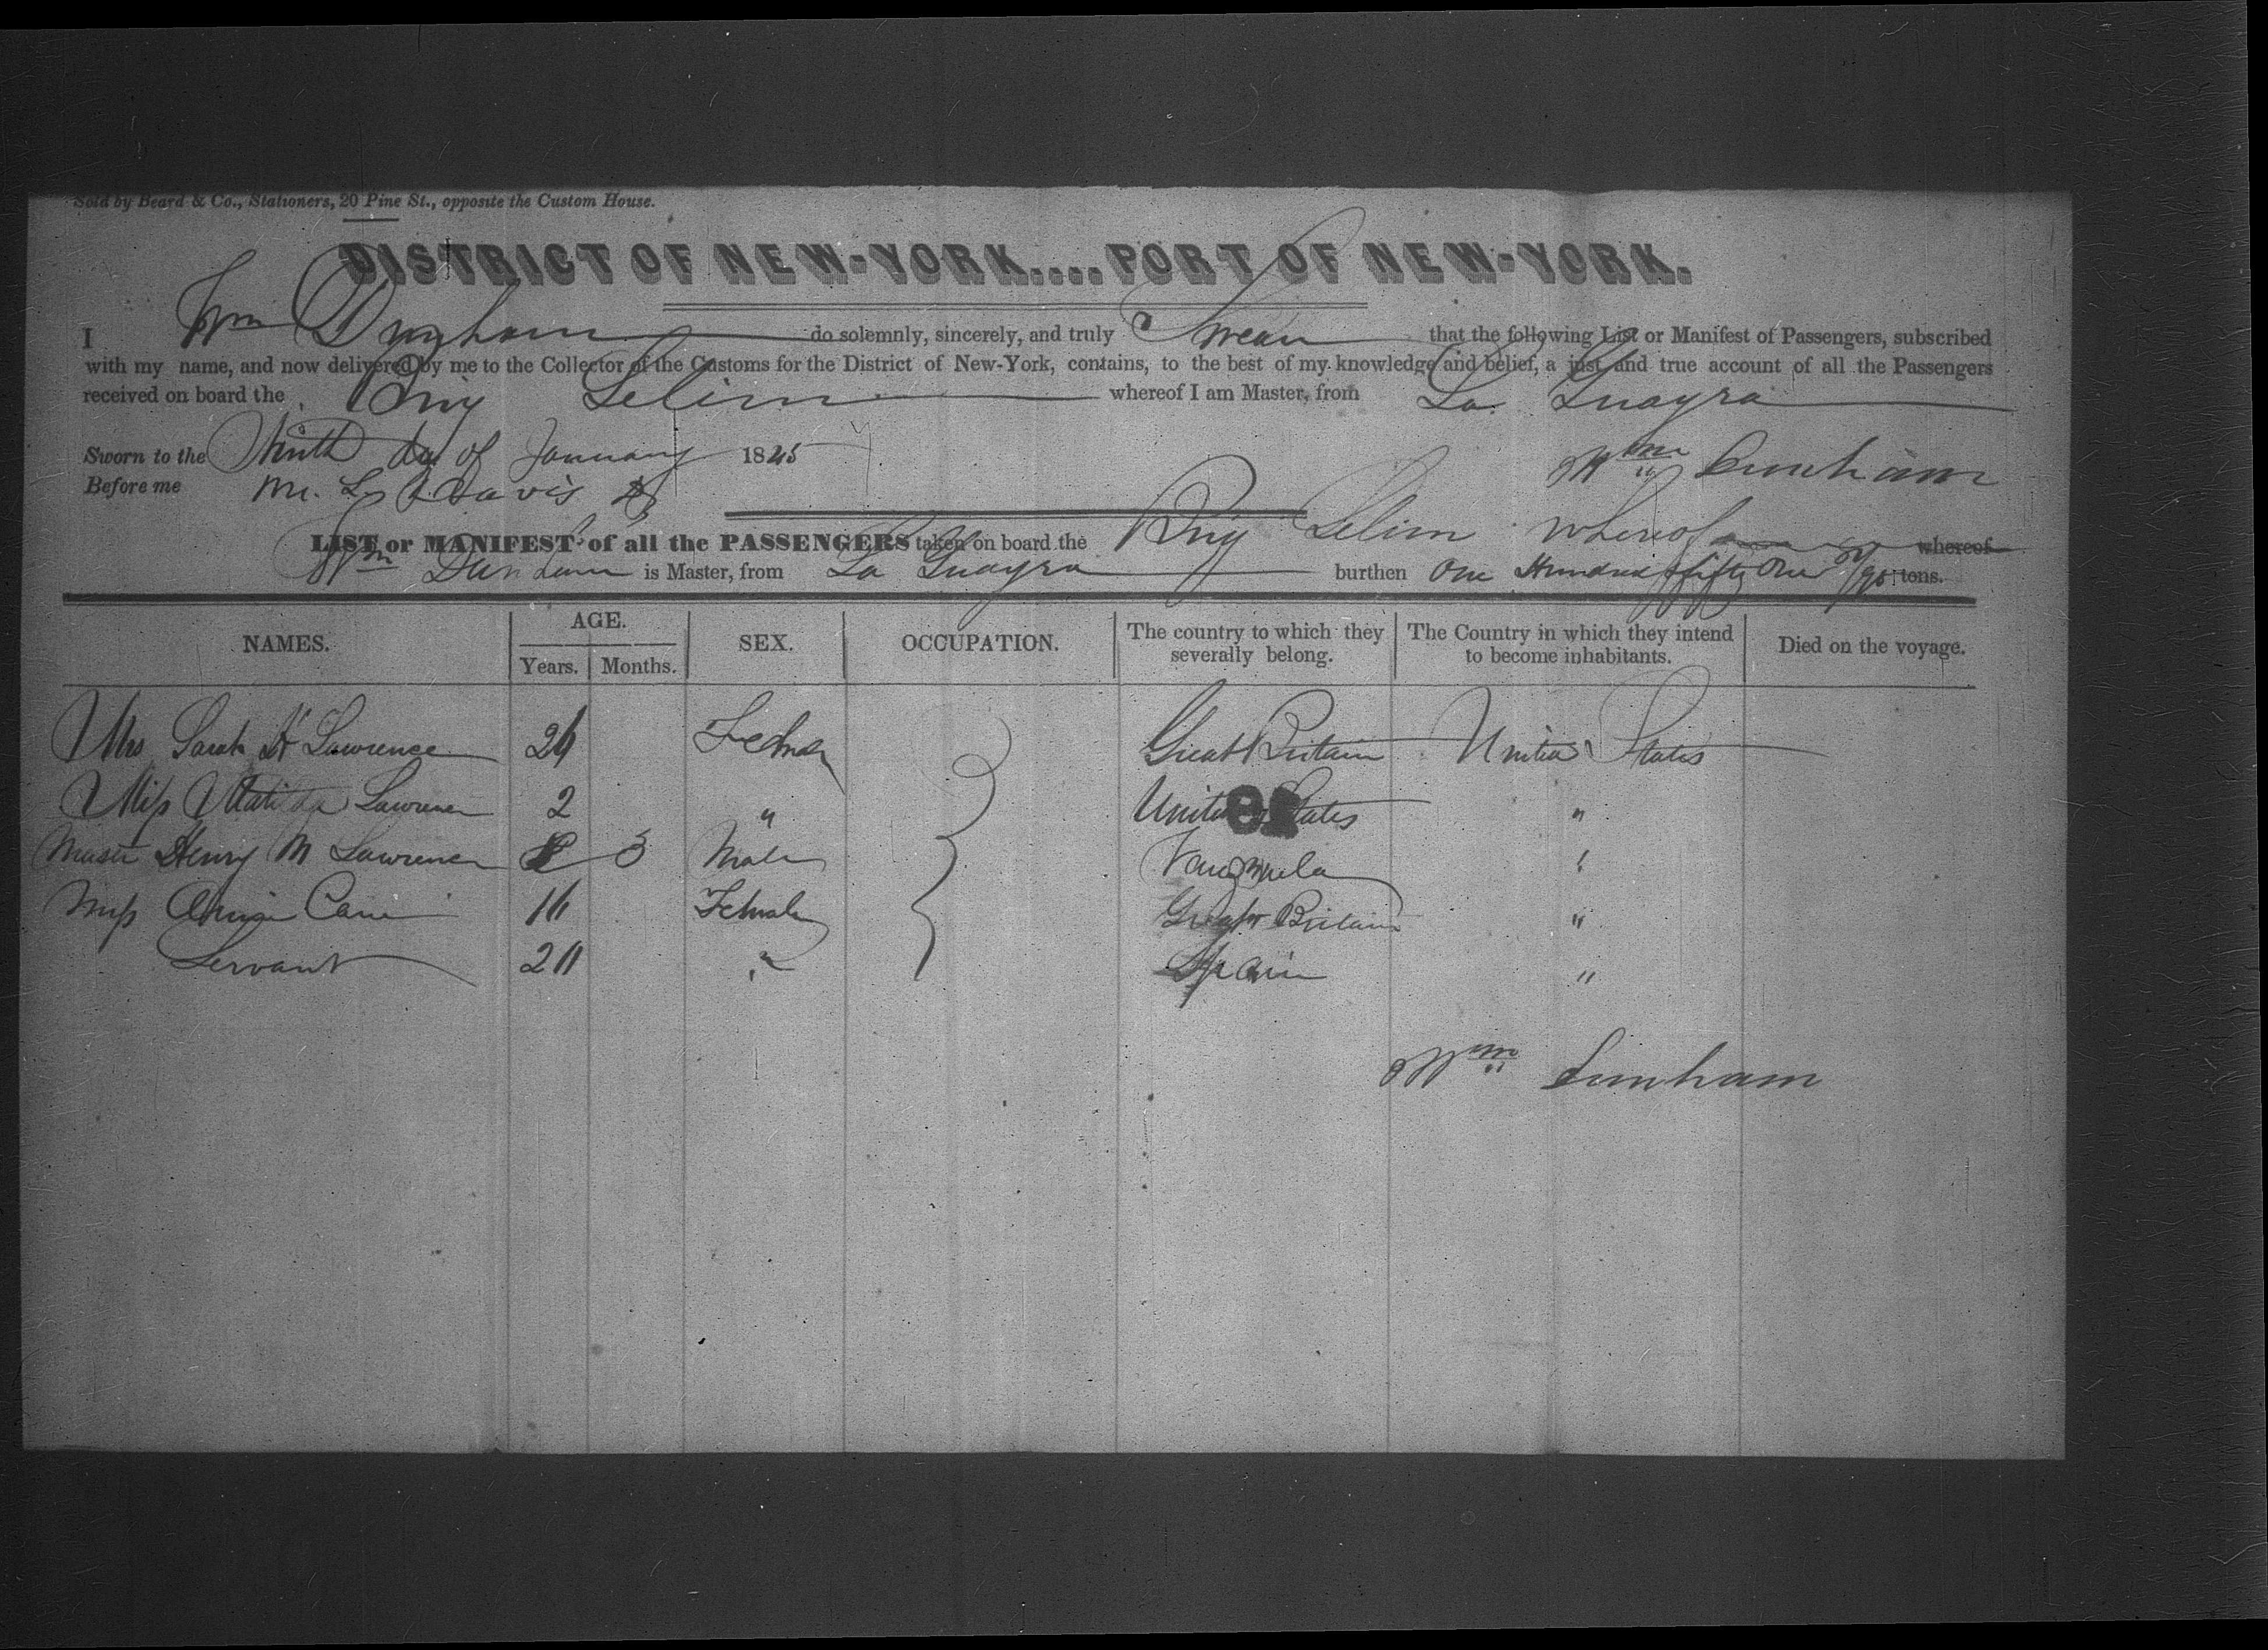 Sold by Beard & Co., Stationers, 20 Pine St., opposite the Custom House.
DISTRICT OF NEW-YORK....PORT OF NEW-YORK.
I Wm Dunham do solemnly, sincerely, and truly Swear that the following List or Manifest of Passengers, subscribed
with my name, and now delivered by me to the Collector of the Customs for the District of New-York, contains, to the best of my knowledge and belief, a just and true account of all the Passengers
received on board the Brig Selim whereof I am Master, from La Guayra
Sworn to the Ninth day of January 1845
Wm Dunham
Before me M. L. Davis
LIST or MANIFEST of all the PASSENGERS taken on board the Brig Selim whereof whereof
Wm Dunham is Master, from La Guayra burthen One Hundred fifty One /95 tons.
NAMES. AGE. Years. Months. SEX. OCCUPATION. The country to which they severally belong. The Country in which they intend to become inhabitants. Died on the voyage.
Mrs Sarah H Lawrence 26 Female Great Britain United States
Miss Matilda Lawrence 2 " United States "
Master Henry M Lawrence 3 Male Venezuela "
Miss Cane 16 Female Great Britain "
Servant 20 " Spain "
Wm Dunham